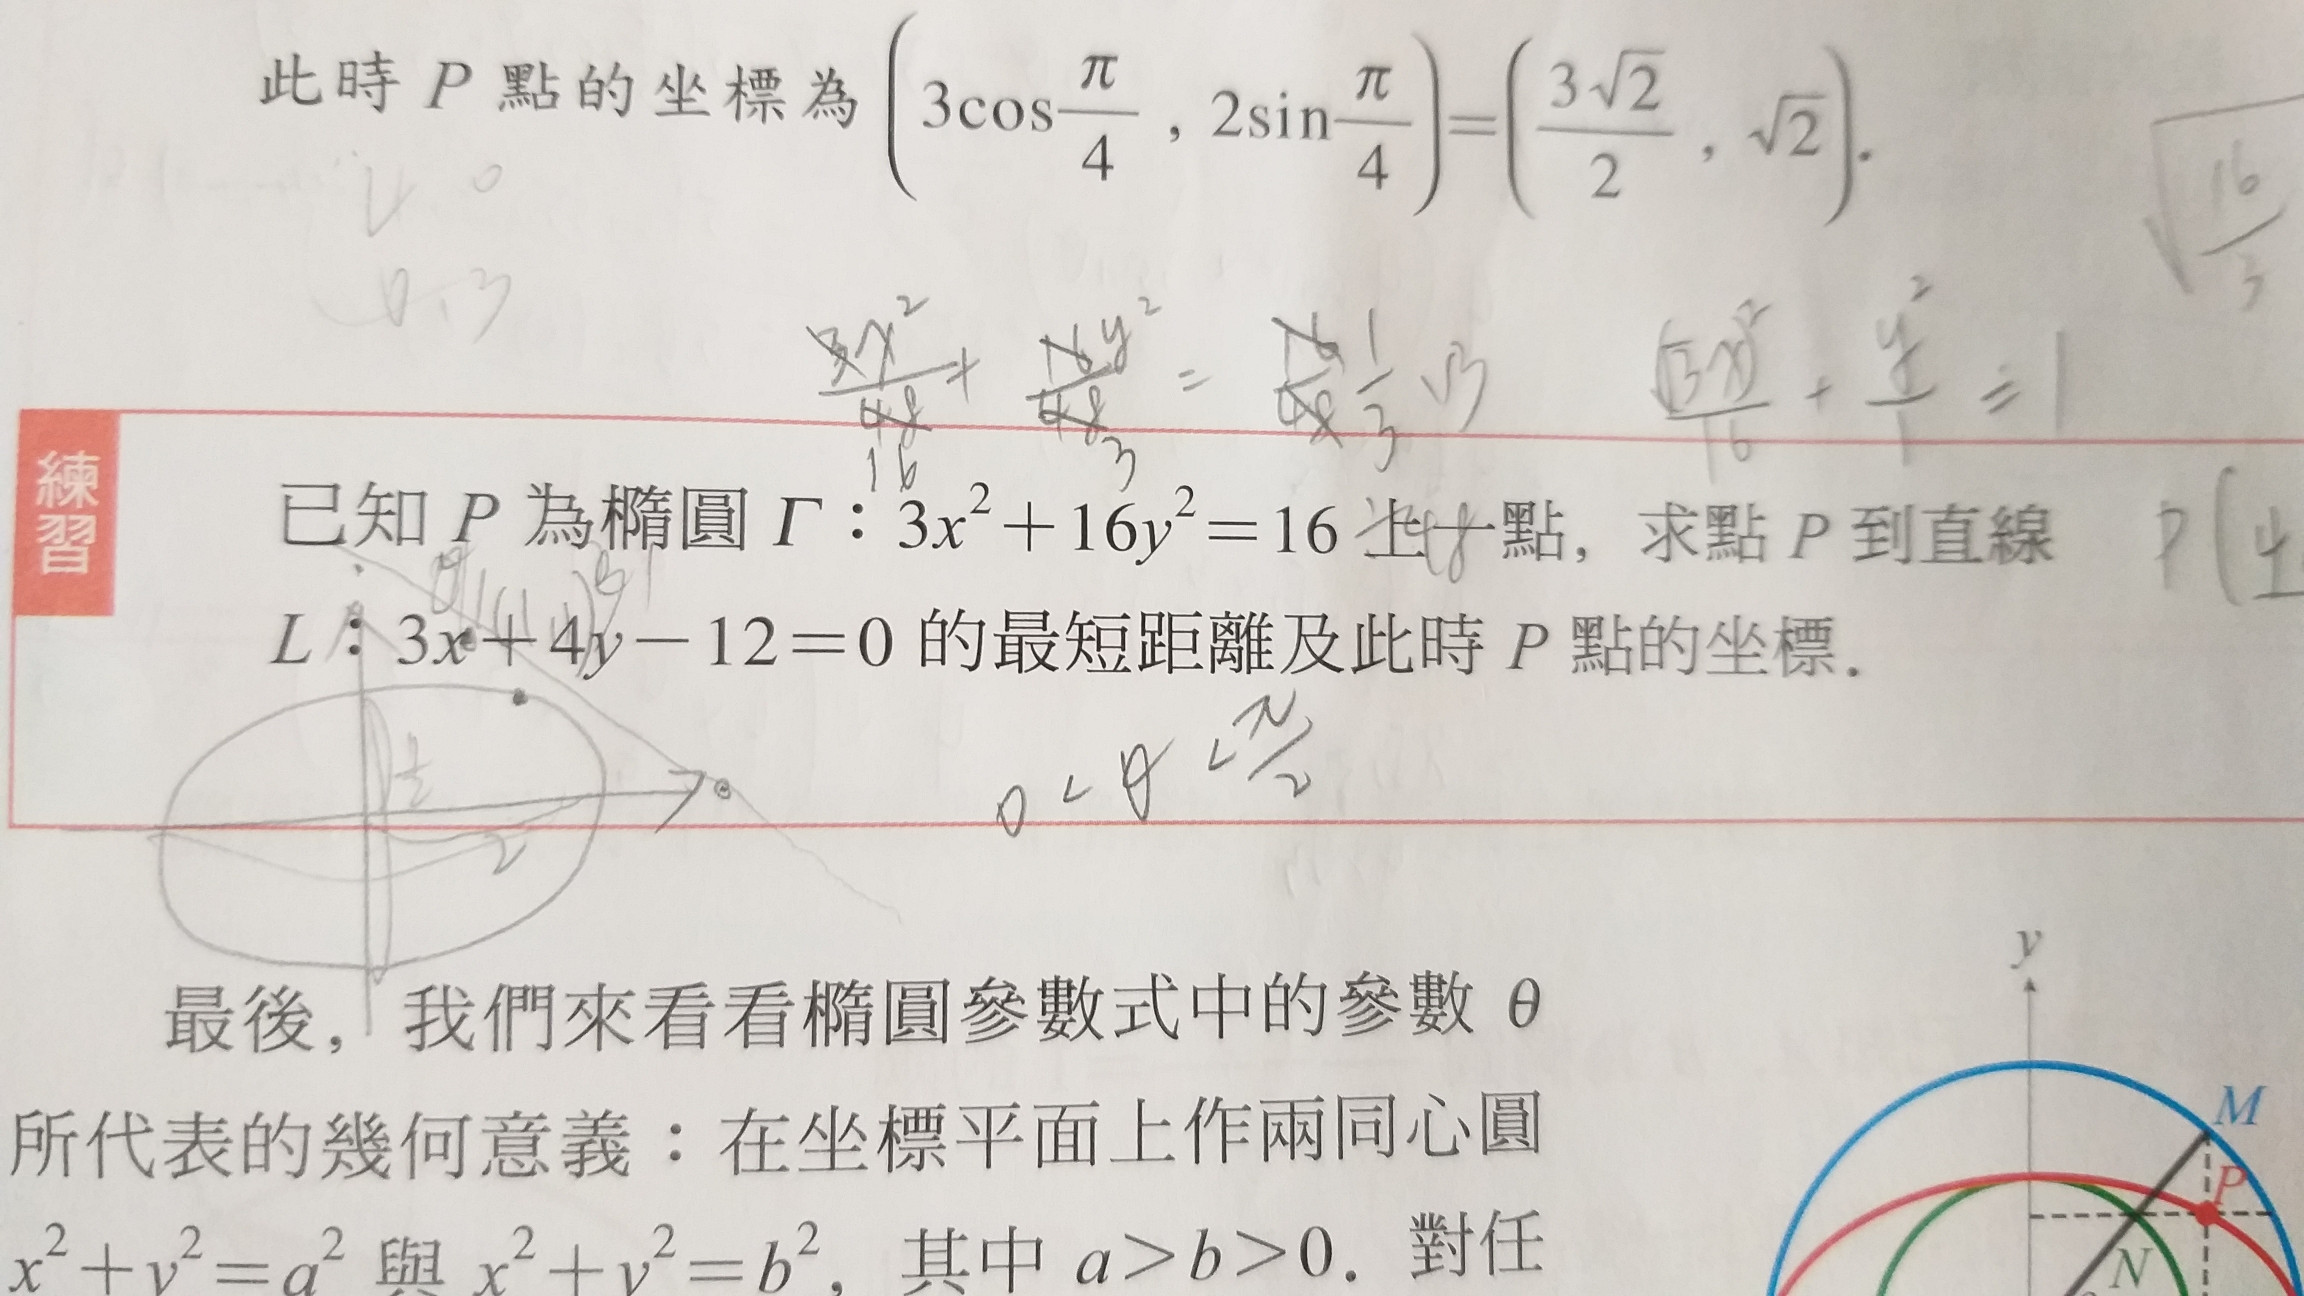 此時 P 點的坐標為 (3cos π/4 , 2sin π/4) = (3√2/2 , √2).
√(16/3)
θ √3
3x²/48 16 + 16y²/48 3 = 16/48 1/3 √3
(√3x)²/16 + y²/1 = 1
練習
已知 P 為橢圓 Γ：3x²+16y²=16 上一點，求點 P 到直線
L：3x+4y−12=0 的最短距離及此時 P 點的坐標.
P(4
0 < θ < π/2
2
最後，我們來看看橢圓參數式中的參數 θ
所代表的幾何意義：在坐標平面上作兩同心圓
x²+y²=a² 與 x²+y²=b²，其中 a>b>0. 對任
y
M
P
N